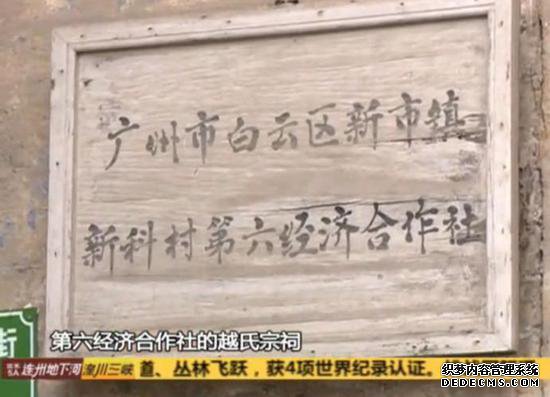 广州市白云区新市镇
新科村第六经济合作社
街
第六经济合作社的越氏宗祠
连州地下河 湟川三峡 首、丛林飞跃，获4项世界纪录认证。
织梦内容管理系统
DEDECMS.COM